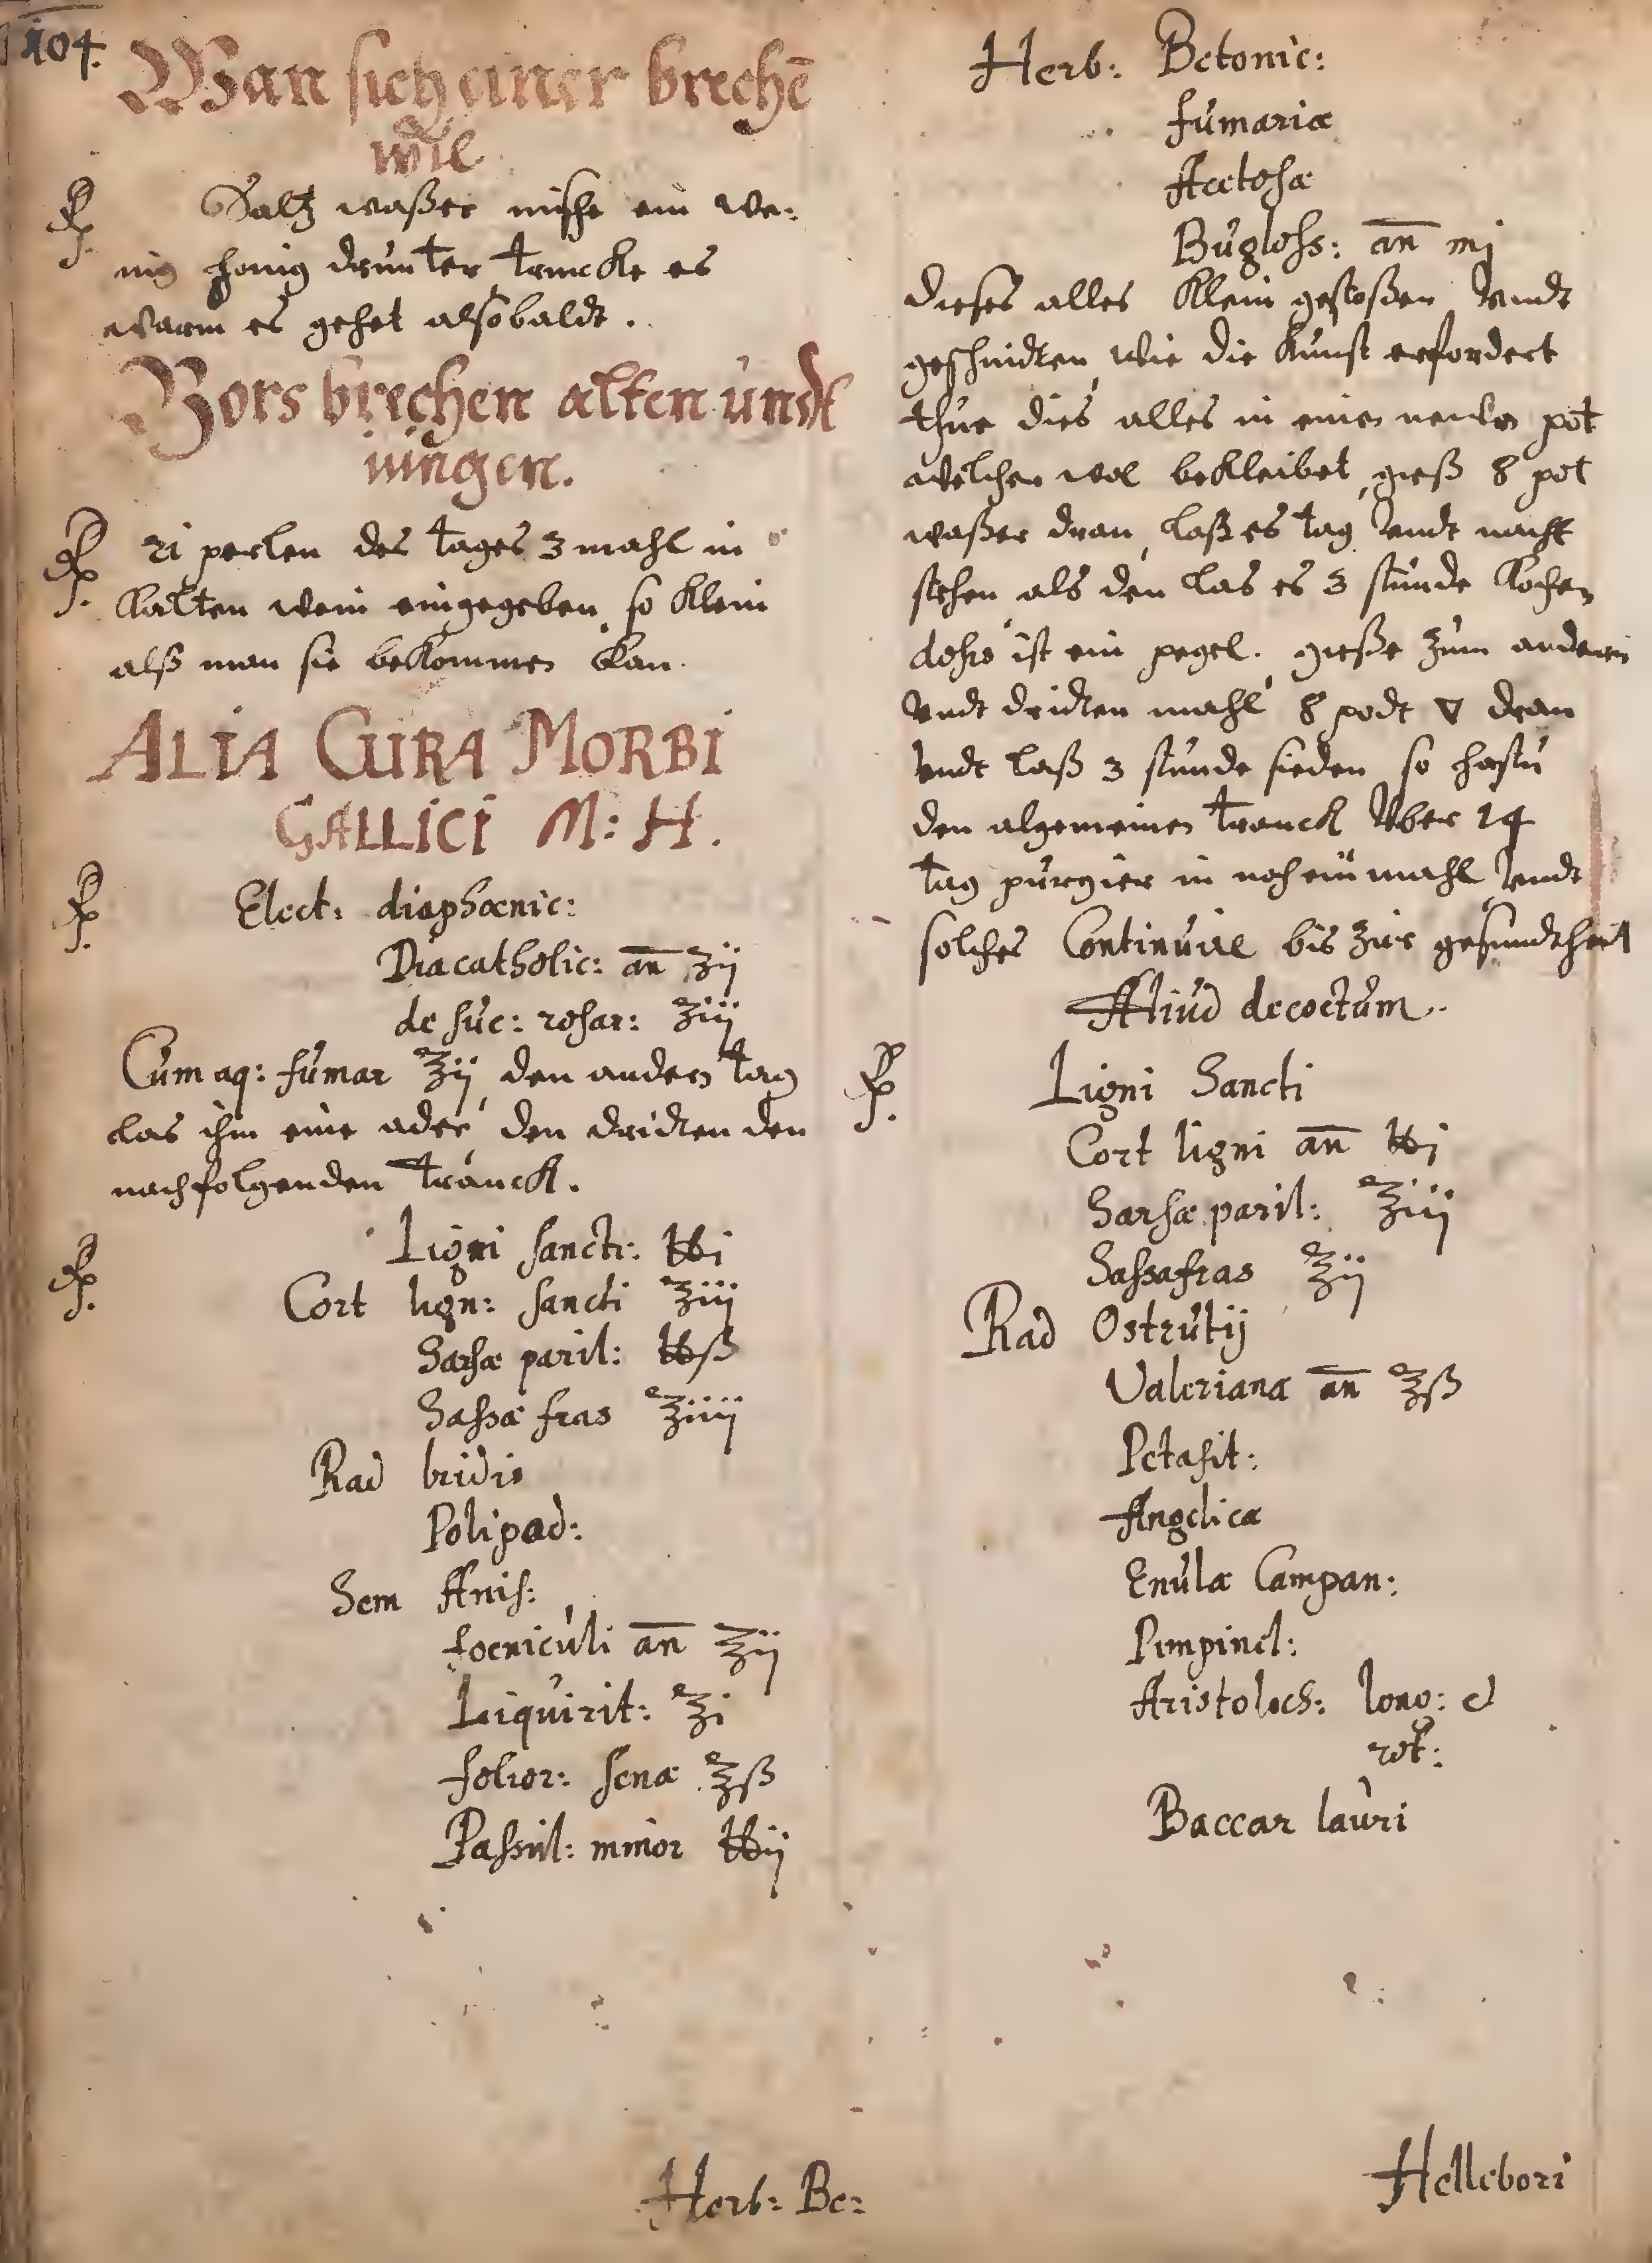 104.
Wan sich einer brechē
wil
℞. Saltz waßer mische ein we:
nig honig drunter trincke es
warm es gehet alsobaldt.
Vors brechen alten undt
jungen.
℞. 21 perlen des tages 3 mahl in
kalten wein eingegeben, so klein
alß man sie bekommen kan.
ALIA CURA MORBI
GALLICI M: H.
℞. Elect: diaphœnic:
Diacatholic: an̄ ʒij
de suc: rosar: ʒiij
Cum aq: fumar ℥ij, den andern tag
las ihm eine ader, den dridten den
nachfolgenden tranck.
℞. Ligni sancti: ℔i
Cort lign: sancti ℥iij
Sarsæ paril: ℔ß
Sassæ fras ℥iiij
Rad Iridis
Polipod:
Sem Anis:
foeniculi an̄ ℥ij
Liquirit: ℥i
folior: senæ ℥ß
Passul: minor ℔ij
Herb: Be:
Herb: Betonic:
fumariæ
Acetosæ
Bugloss: an̄ mj
dieses alles klein gestoßen Vndt
geschnidten, wie die kunst erfordert
thue dies alles in einen newen pot
welcher wol bekleibet, gieß 8 pot
waßer dran, laß es tag Vndt nacht
stehen als den las es 3 stunde kochen
dohs ist ein pegel. gieße zum anderen
Vndt dridten mahl 8 podt ▽ dran
Vndt laß 3 stunde sieden, so hastu
den algemeinen tranck Vber 14
tag purgier in noch ein mahl, Vndt
solches Continuire bis zur gesundtheit
Aliud decoctum.
℞. Ligni Sancti
Cort ligni an̄ ℔j
Sarsæ paril: ℥iij
Sassafras ℥ij
Rad Ostrutij
Valeriana an̄ ℥ß
Petasit:
Angelicæ
Enulæ Campan:
Pimpinel:
Aristoloch: long: &
rot:
Baccar lauri
Hellebori